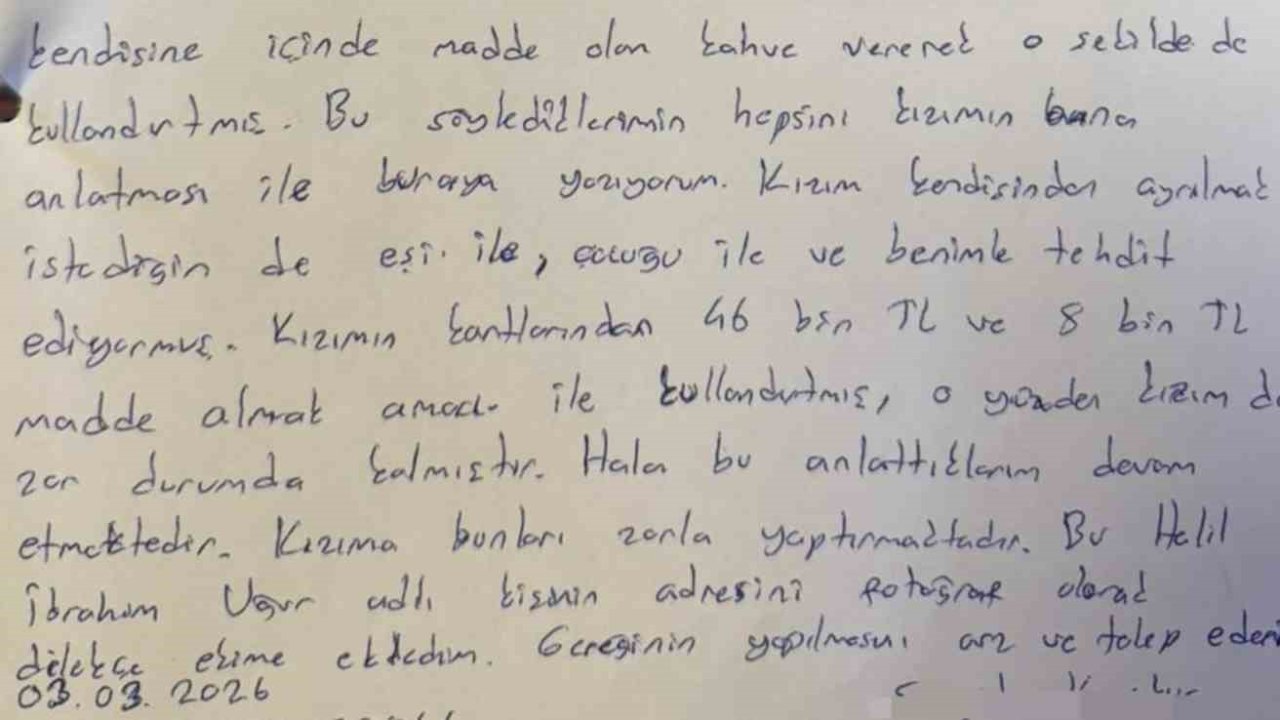 kendisine içinde madde olan kahve vererek o şekilde de
kullandırtmış. Bu söylediklerimin hepsini kızımın bana
anlatması ile buraya yazıyorum. Kızım kendisinden ayrılmak
istediğin de eşi ile, çocuğu ile ve benimle tehdit
ediyormuş. Kızımın kartlarından 46 bin TL ve 8 bin TL
madde almak amacı ile kullandırtmış, o yüzden kızım da
zor durumda kalmıştır. Hala bu anlattıklarım devam
etmektedir. Kızıma bunları zorla yaptırmaktadır. Bu Halil
İbrahim Uğur adlı kişinin adresini fotoğraf olarak
dilekçe ekime ekledim. Gereğinin yapılmasını arz ve talep ederi
03.03.2026